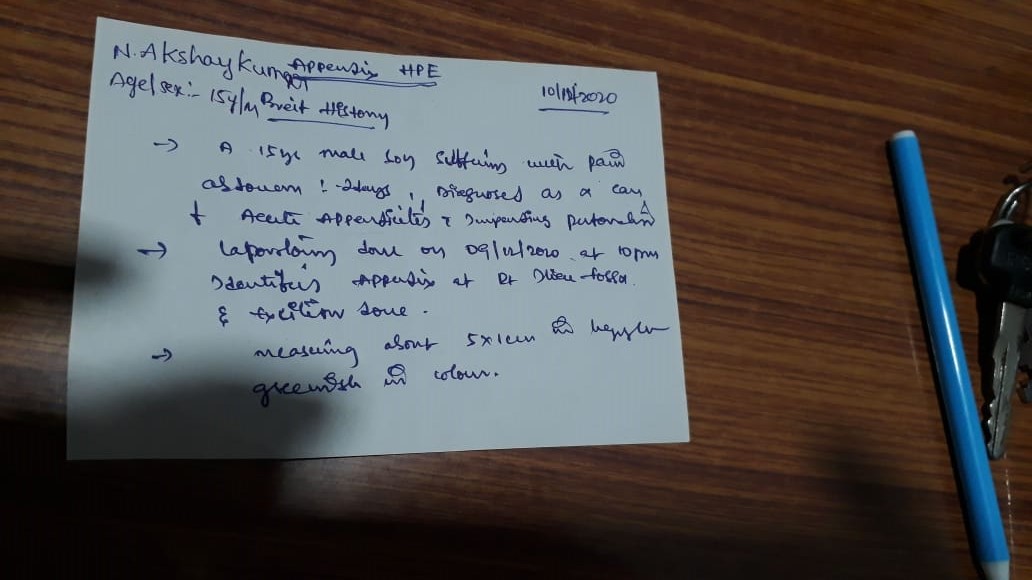 N. Akshay Kumar Appendix HPE
Age/sex:- 15y/M Breif History 10/12/2020
→ A 15yr male boy suffering with pain
abdomen : 2days, Diagnosed as a case
of Acute Appendicitis & Impending
→ done on 09/12/2020 at 10pm
Identifies Appendix at Rt Iliac fossa.
& Excision done.
→ measuring about 5x1cm in
greenish in colour.